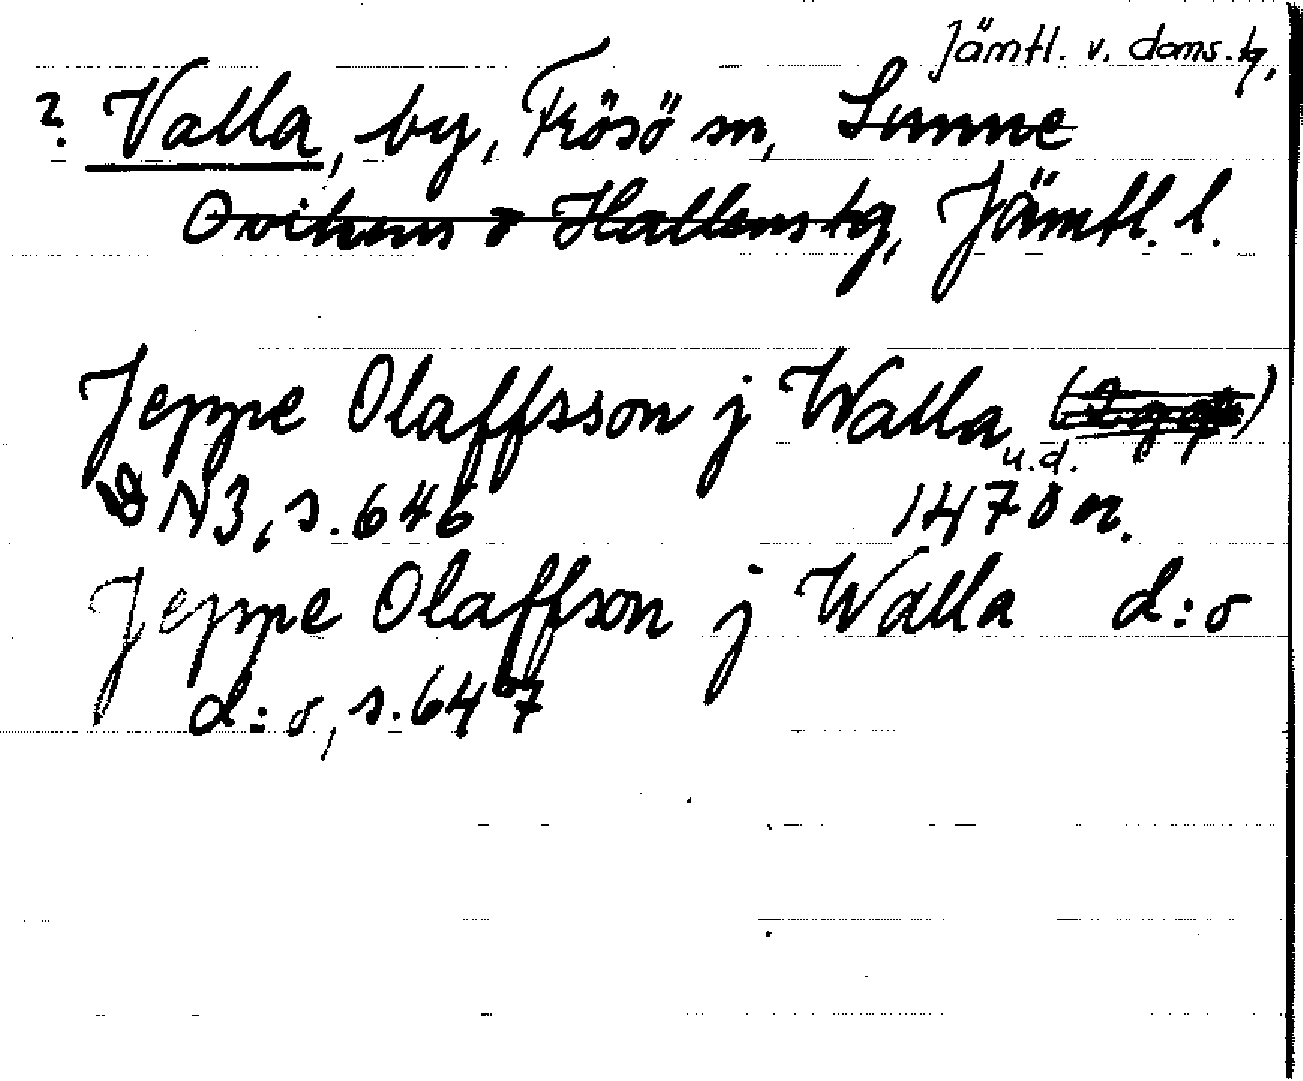 Jämtl. v. doms.tg,
? Valla, by, Frösö sn, Sunne
Ovikens o Hallens tg, Jämtl. l.
Jeppe Olaffsson j Walla
u.d.
N3, s. 646 1470
Jeppe Olaffson j Walla d:o
d:o, s. 647